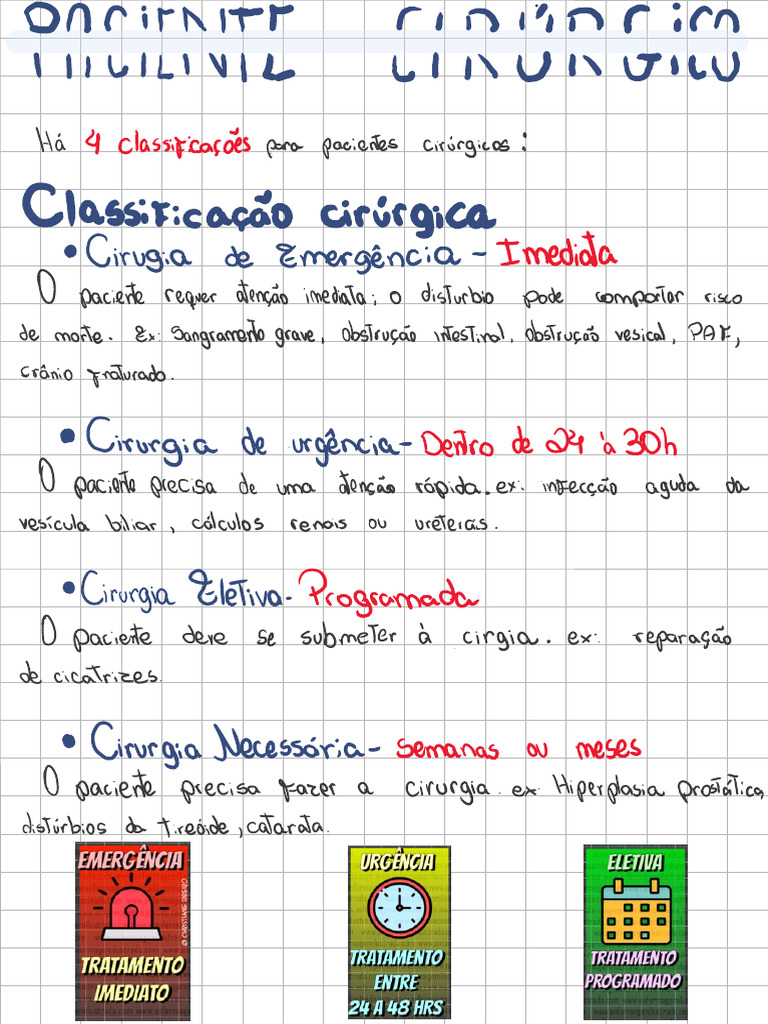 PACIENTE CIRÚRGICO
Há 4 classificações para pacientes cirúrgicos:
Classificação cirúrgica
• Cirugia de Emergência - Imediata
O paciente requer atenção imediata; o disturbio pode comportar risco
de morte. Ex: Sangramento grave, obstrução intestinal, obstrução vesical, PAF,
crânio fraturado.
• Cirurgia de urgência - Dentro de 24 à 30h
O paciente precisa de uma atenção rápida. ex: infecção aguda da
vesícula biliar, cálculos renais ou ureterais.
• Cirurgia Eletiva - Programada
O paciente deve se submeter à cirgia. ex: reparação
de cicatrizes.
• Cirurgia Necessária - semanas ou meses
O paciente precisa fazer a cirurgia. ex: Hiperplasia prostática,
distúrbios da tireóide, catarata.
EMERGÊNCIA
TRATAMENTO
IMEDIATO
URGÊNCIA
TRATAMENTO
ENTRE
24 A 48 HRS
ELETIVA
TRATAMENTO
PROGRAMADO